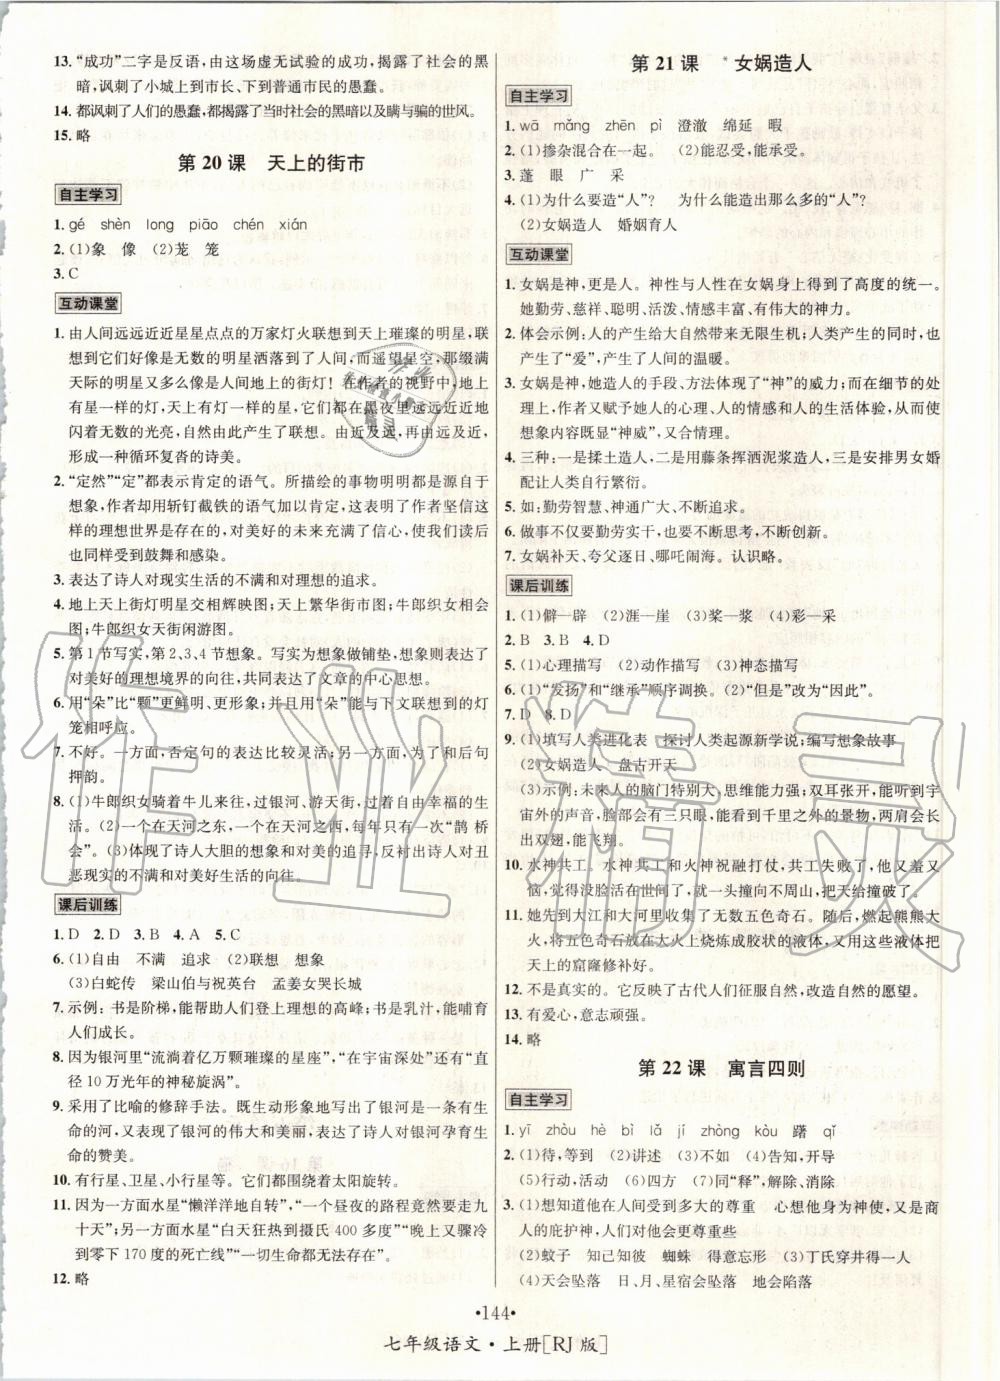 13. “成功”二字是反语，由这场虚无试验的成功，揭露了社会的黑
暗，讽刺了小城上到市长、下到普通市民的愚蠢。
14. 都讽刺了人们的愚蠢，都揭露了当时社会的黑暗以及瞒与骗的世风。
15. 略
第 20 课 天上的街市
自主学习
1. gé shèn long piāo chén xián
2. (1)象 像 (2)茏 笼
3. C
互动课堂
1. 由人间远远近近星星点点的万家灯火联想到天上璀璨的明星，联
想到它们好像是无数的明星洒落到了人间，而遥望星空，那缀满
天际的明星又多么像是人间地上的街灯！在作者的视野中，地上
有星一样的灯，天上有灯一样的星，它们都在黑夜里远远近近地
闪着无数的光亮，自然由此产生了联想。由近及远，再由远及近，
形成一种循环复沓的诗美。
2. “定然”“定”都表示肯定的语气。所描绘的事物明明都是源自于
想象，作者却用斩钉截铁的语气加以肯定，表现了作者坚信这样
的理想世界是存在的，对美好的未来充满了信心，使我们读后
也同样受到鼓舞和感染。
3. 表达了诗人对现实生活的不满和对理想的追求。
4. 地上天上街灯明星交相辉映图；天上繁华街市图；牛郎织女相会
图；牛郎织女天街闲游图。
5. 第1节写实，第2、3、4节想象。写实为想象做铺垫，想象则表达了
对美好的理想境界的向往，体现了文章的中心思想。
6. 用“朵”比“颗”更鲜明、更形象；并且用“朵”能与下文联想到的灯
笼相呼应。
7. 不好。一方面，否定句的表达比较灵活；另一方面，为了和后句
押韵。
8. (1)牛郎织女骑着牛儿来往，过银河、游天街，过着自由幸福的生
活。(2)一个在天河之东，一个在天河之西，每年只有一次“鹊 桥
会”。(3)体现了诗人大胆的想象和对美的追寻，反衬出诗人对丑
恶现实的不满和对美好生活的向往。
课后训练
1. D 2. D 3. B 4. A 5. C
6. (1)自由 不满 追求 (2)联想 想象
(3)白蛇传 梁山伯与祝英台 孟姜女哭长城
7. 示例：书是阶梯，能帮助人们登上理想的高峰；书是乳汁，能哺育
人们成长。
8. 因为银河里“流淌着亿万颗璀璨的星座”，“在宇宙深处”还有“直
径 10 万光年的神秘旋涡”。
9. 采用了比喻的修辞手法。既生动形象地写出了银河是有生命
的河，又表现了银河的伟大和美丽，表达了诗人对银河孕育生命
的赞美。
10. 有行星、卫星、小行星等。它们都围绕着太阳旋转。
11. 因为一方面水星“懒洋洋地自转”，“一个昼夜的路程竟然要走九
十天”；另一方面水星“白天狂热到摄氏 400 多度”“晚上又骤冷
到零下 170 度的死亡线”“一切生命都无法存在”。
12. 略
第 21 课 *女娲造人
自主学习
1. wā mǎng zhēn pì 澄澈 绵延 暇
2. (1)掺杂混合在一起。 (2)能忍受，能承受。
3. 蓬 眼 广 采
4. (1)为什么要造“人”？ 为什么能造出那么多的“人”？
(2)女娲造人 婚姻育人
互动课堂
1. 女娲是神，更是人。神性与人性在女娲身上得到了高度的统一。
她勤劳、慈祥、聪明、活泼、情感丰富、有伟大的神力。
2. 体会示例：人的产生给大自然带来无限生机；人类产生的同时，也
产生了“爱”，产生了人间的温暖。
3. 女娲是神，她造人的手段、方法体现了“神”的威力；而在细节的处
理上，作者又赋予她人的心理、人的情感和人的生活体验，从而使
想象内容既显“神威”，又合情理。
4. 三种：一是揉土造人，二是用藤条挥洒泥浆造人，三是安排男女婚
配让人类自行繁衍。
5. 如：勤劳智慧、神通广大、不断追求。
6. 做事不仅要勤劳实干，也要不断思考，不断创新。
7. 女娲补天、夸父逐日、哪吒闹海。认识略。
课后训练
1. (1)僻—辟 (2)涯—崖 (3)桨—浆 (4)彩—采
2. B 3. B 4. D
5. (1)心理描写 (2)动作描写 (3)神态描写
6. (1)“发扬”和“继承”顺序调换。(2)“但是”改为“因此”。
7. D 8. D
9. (1)填写人类进化表 探讨人类起源新学说；编写想象故事
(2)女娲造人 盘古开天
(3)示例：未来人的脑门特别大，思维能力强；双耳张开，能听到宇
宙外的声音，脸部会有三只眼，能看到千里之外的小物，两肩会长
出双翅，能飞翔。
10. 水神共工。水神共工和火神祝融打仗，共工失败了，他又羞又
恼，觉得没脸活在世间了，就一头撞向不周山，把天给撞破了。
11. 她先到大江和大河里收集了无数五色奇石。随后，燃起熊熊大
火，将五色奇石放在大火上烧炼成胶状的液体，又用这些液体把
天上的窟窿修补好。
12. 不是真实的。它反映了古代人们征服自然，改造自然的愿望。
13. 有爱心，意志顽强。
14. 略
第 22 课 寓言四则
自主学习
1. yī zhòu hè bì lǎ jí zhòng kòu 躇 qǐ
2. (1)待，等到 (2)讲述 (3)不如 (4)告知，开导
(5)可行，成功 (6)四方 (7)同“释”，解除，消除
3. (1)想知道他在人间受到多大的尊重 心想他身为神使，又是商
人的庇护神，人们对他会更尊重些
(2)蚊子 知己知彼 蜘蛛 得意忘形 (3)丁氏穿井得一人
(4)天会坠落 日、月、星宿会坠落 地会陷落
·144·
七年级语文·上册[RJ版]